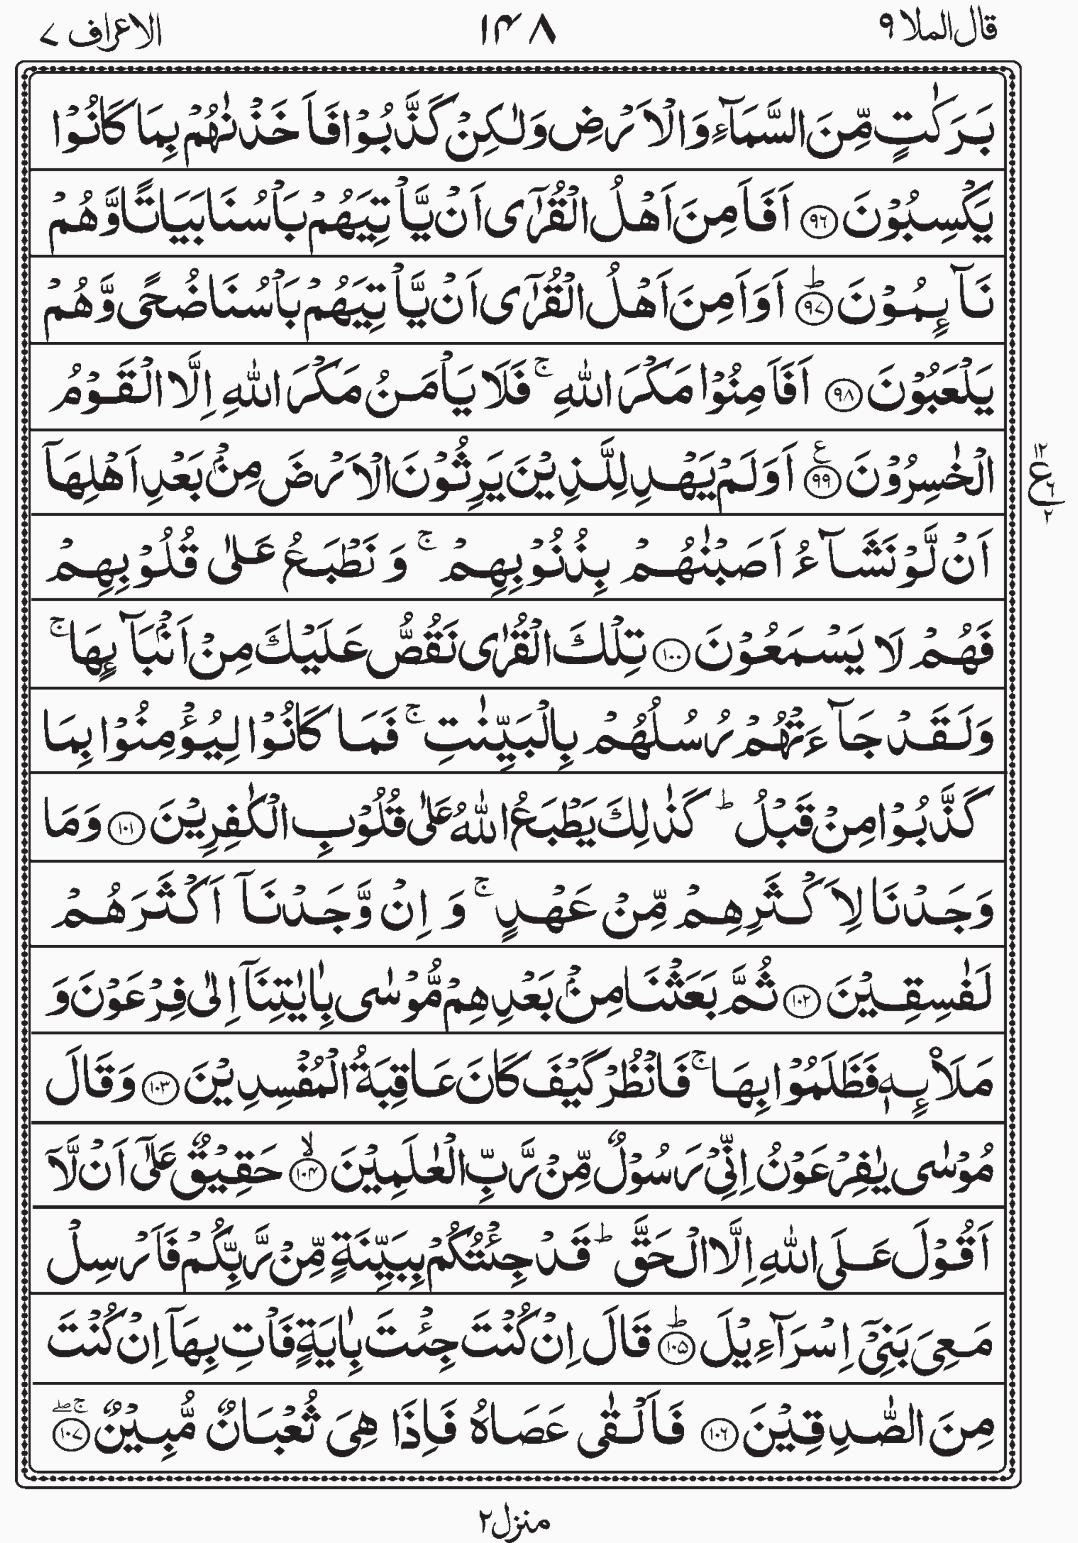 قال الملا ٩
١٤٨
الاعراف ٧
بَرَكٰتٍ مِّنَ السَّمَآءِ وَالْاَرْضِ وَلٰكِنْ كَذَّبُوْا فَاَخَذْنٰهُمْ بِمَا كَانُوْا
يَكْسِبُوْنَ ٩٦ اَفَاَمِنَ اَهْلُ الْقُرٰٓى اَنْ يَّاْتِيَهُمْ بَاْسُنَا بَيَاتًا وَّهُمْ
نَآئِمُوْنَ ؕ ٩٧ اَوَاَمِنَ اَهْلُ الْقُرٰٓى اَنْ يَّاْتِيَهُمْ بَاْسُنَا ضُحًى وَّهُمْ
يَلْعَبُوْنَ ٩٨ اَفَاَمِنُوْا مَكْرَ اللّٰهِ ۚ فَلَا يَاْمَنُ مَكْرَ اللّٰهِ اِلَّا الْقَوْمُ
الْخٰسِرُوْنَ ع ٩٩ اَوَلَمْ يَهْدِ لِلَّذِيْنَ يَرِثُوْنَ الْاَرْضَ مِنْۢ بَعْدِ اَهْلِهَآ
١٢ ع ٦ ٢
اَنْ لَّوْ نَشَآءُ اَصَبْنٰهُمْ بِذُنُوْبِهِمْ ۚ وَ نَطْبَعُ عَلٰى قُلُوْبِهِمْ
فَهُمْ لَا يَسْمَعُوْنَ ١٠٠ تِلْكَ الْقُرٰى نَقُصُّ عَلَيْكَ مِنْ اَنْۢبَآئِهَا ۚ
وَلَقَدْ جَآءَتْهُمْ رُسُلُهُمْ بِالْبَيِّنٰتِ ۚ فَمَا كَانُوْا لِيُؤْمِنُوْا بِمَا
كَذَّبُوْا مِنْ قَبْلُ ؕ كَذٰلِكَ يَطْبَعُ اللّٰهُ عَلٰى قُلُوْبِ الْكٰفِرِيْنَ ١٠١ وَمَا
وَجَدْنَا لِاَكْثَرِهِمْ مِّنْ عَهْدٍ ۚ وَ اِنْ وَّجَدْنَآ اَكْثَرَهُمْ
لَفٰسِقِيْنَ ١٠٢ ثُمَّ بَعَثْنَا مِنْۢ بَعْدِهِمْ مُّوْسٰى بِاٰيٰتِنَآ اِلٰى فِرْعَوْنَ وَ
مَلَا۟ئِهٖ فَظَلَمُوْا بِهَا ۚ فَانْظُرْ كَيْفَ كَانَ عَاقِبَةُ الْمُفْسِدِيْنَ ١٠٣ وَقَالَ
مُوْسٰى يٰفِرْعَوْنُ اِنِّىْ رَسُوْلٌ مِّنْ رَّبِّ الْعٰلَمِيْنَ ۙ ١٠٤ حَقِيْقٌ عَلٰٓى اَنْ لَّآ
اَقُوْلَ عَلَى اللّٰهِ اِلَّا الْحَقَّ ؕ قَدْ جِئْتُكُمْ بِبَيِّنَةٍ مِّنْ رَّبِّكُمْ فَاَرْسِلْ
مَعِىَ بَنِىْٓ اِسْرَآءِيْلَ ؕ ١٠٥ قَالَ اِنْ كُنْتَ جِئْتَ بِاٰيَةٍ فَاْتِ بِهَآ اِنْ كُنْتَ
مِنَ الصّٰدِقِيْنَ ١٠٦ فَاَلْقٰى عَصَاهُ فَاِذَا هِىَ ثُعْبَانٌ مُّبِيْنٌ ۚۖ ١٠٧
منزل ٢